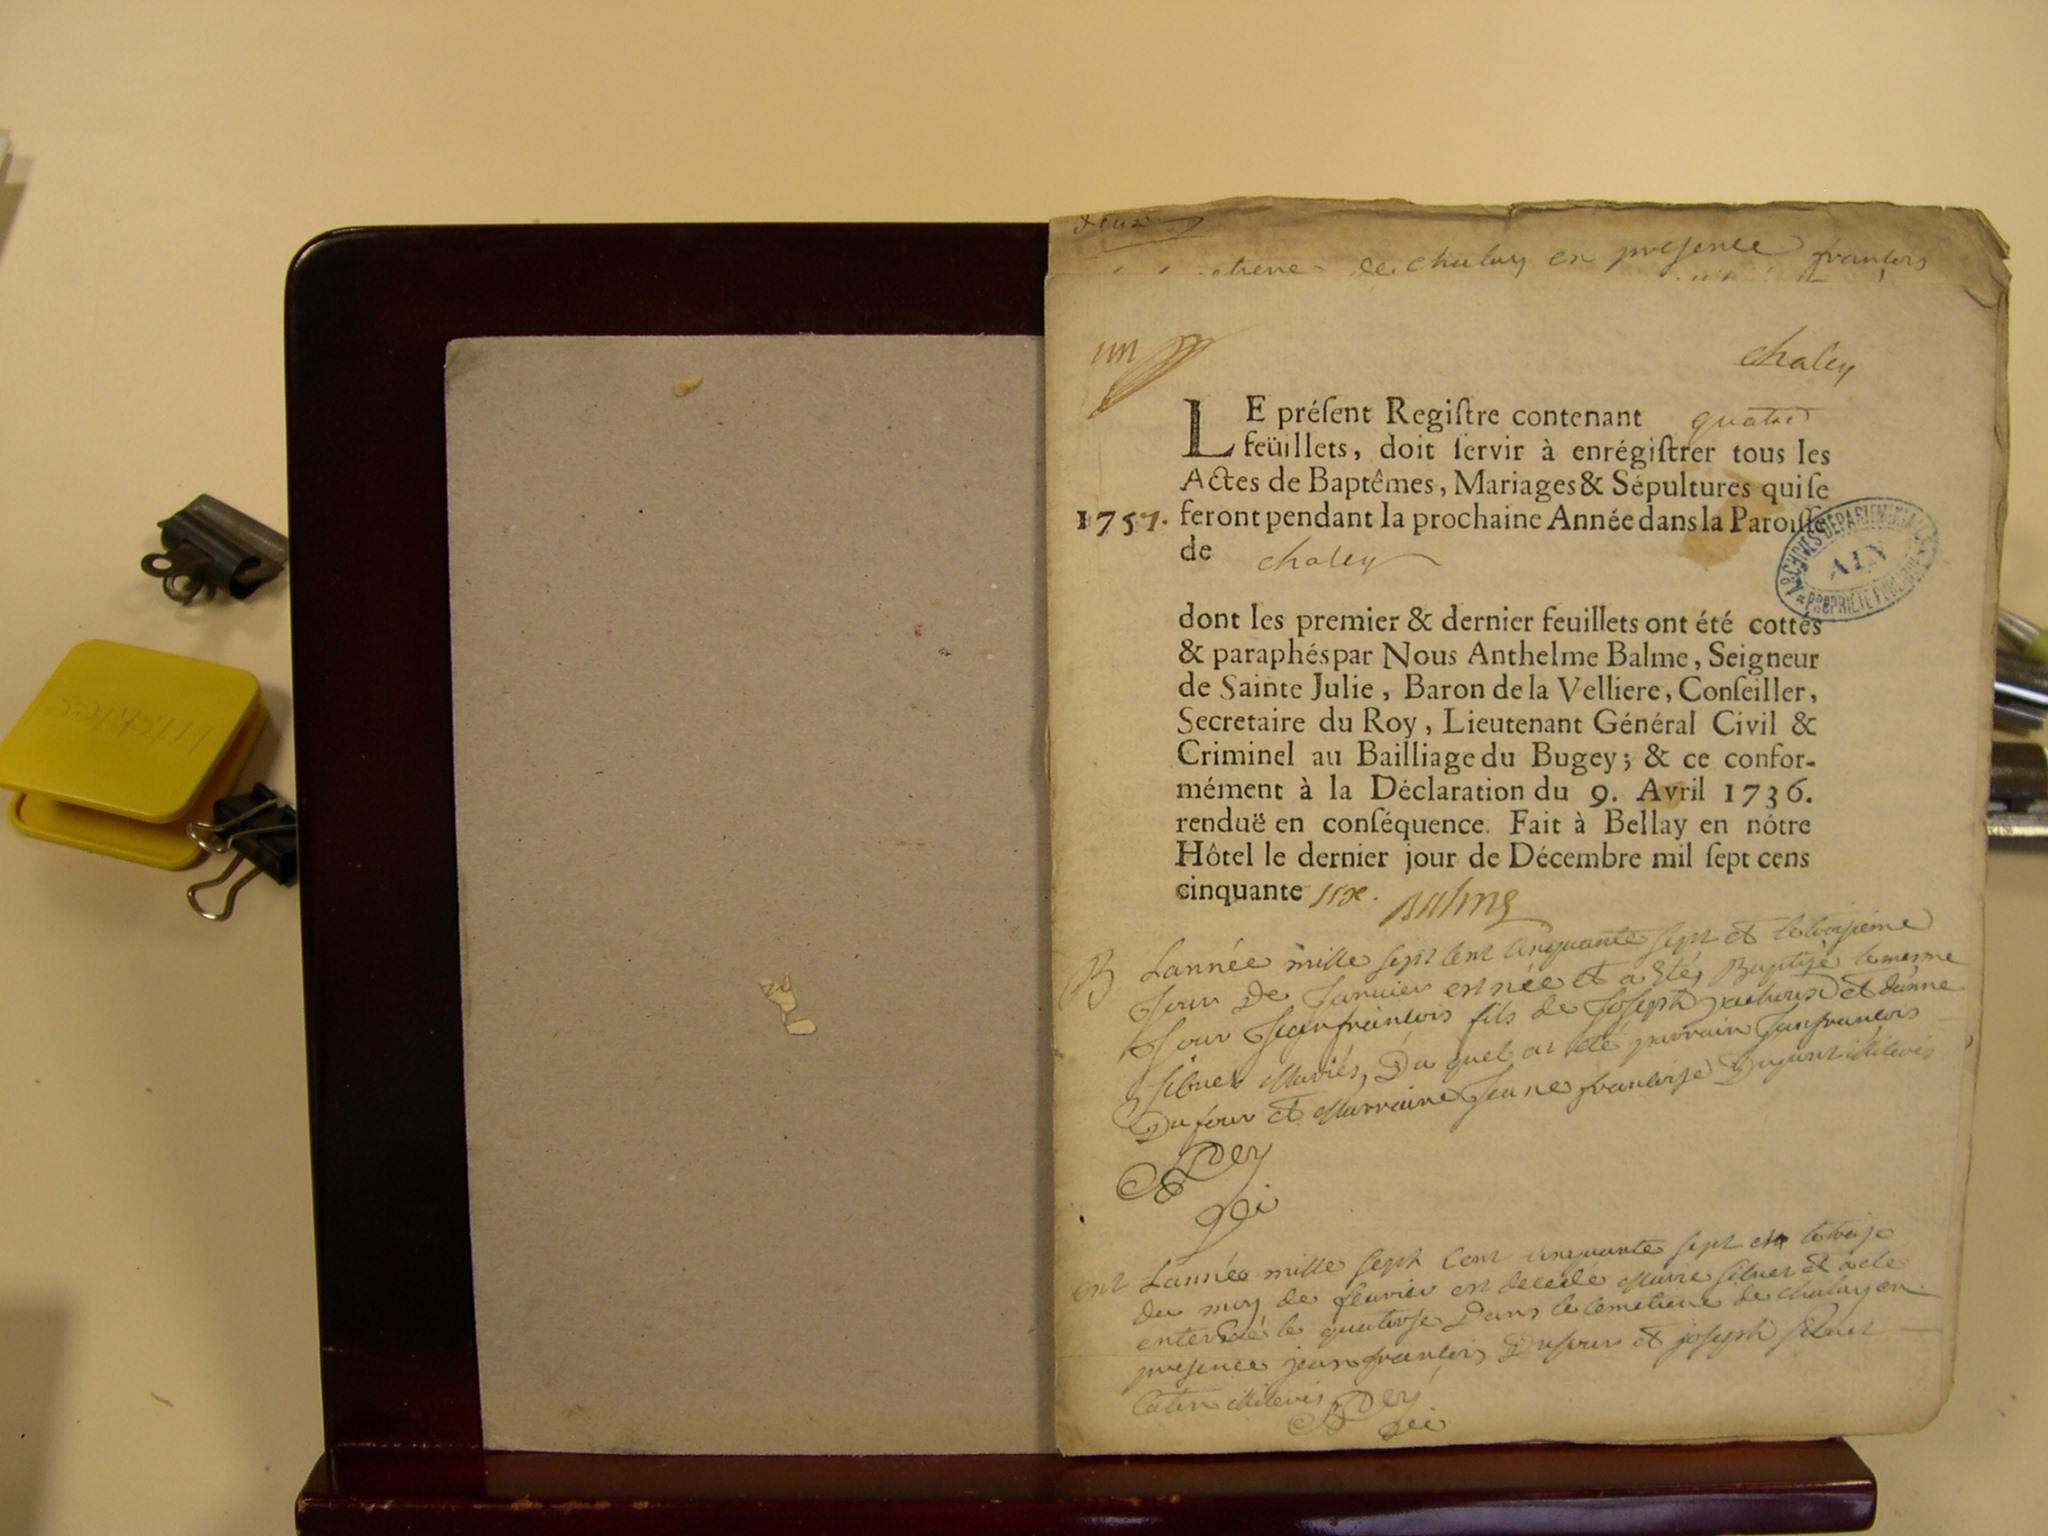 deux
de chaley en presence francois
un
chaley
LE préſent Regiſtre contenant quatre
feüillets, doit ſervir à enrégiſtrer tous les
Actes de Baptêmes, Mariages & Sépultures qui ſe
1757. feront pendant la prochaine Année dans la Paroiſſe
de chaley
ARCHIVES DEPARTEMENTALES
AIN
PROPRIÉTÉ PUBLIQUE
dont les premier & dernier feuillets ont été cottés
& paraphés par Nous Anthelme Balme, Seigneur
de Sainte Julie, Baron de la Velliere, Conſeiller,
Secretaire du Roy, Lieutenant Général Civil &
Criminel au Bailliage du Bugey; & ce confor-
mément à la Déclaration du 9. Avril 1736.
renduë en conſéquence. Fait à Bellay en nôtre
Hôtel le dernier jour de Décembre mil ſept cens
cinquante six. Balme
B Lannée mille sept cent cinquante sept et le troisieme
Jour De Janvier est née et a Eté Baptisé le mesme
Jour Jean francois fils de Joseph et danne
sibuet Mariés, Du quel a eté parrain Jean francois
Dufour et Marraine Jeane francoise Dupont illiterés
Rey
Lannée mille sept cent cinquante sept et le treise
du moy de fevrier est decedé Marie sibuet et a eté
enterré le quatorse Dans le cemetiere de chaley en
presence jean francois Dufour et joseph sibuet
illiterés Rey